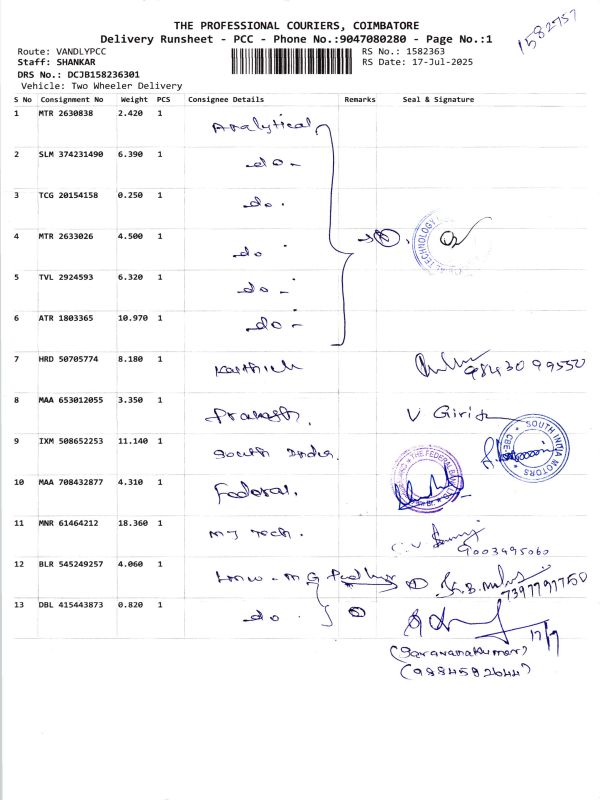 THE PROFESSIONAL COURIERS, COIMBATORE
Delivery Runsheet - PCC - Phone No.:9047080280 - Page No.:1
1582757
Route: VANDLYPCC RS No.: 1582363
Staff: SHANKAR RS Date: 17-Jul-2025
DRS No.: DCJB158236301
Vehicle: Two Wheeler Delivery
S No Consignment No Weight PCS Consignee Details Remarks Seal & Signature
1 MTR 2630838 2.420 1 Analytical
2 SLM 374231490 6.390 1 - do -
3 TCG 20154158 0.250 1 - do .
4 MTR 2633026 4.500 1 - do
5 TVL 2924593 6.320 1 - do -
6 ATR 1803365 10.970 1 - do -
7 HRD 50705774 8.180 1 Karthick
8 MAA 653012055 3.350 1 Prakash. V Girish
9 IXM 508652253 11.140 1 South India. SOUTH INDIA MOTORS CBE
10 MAA 708432877 4.310 1 Federal. THE FEDERAL BANK
11 MNR 61464212 18.360 1 MJ Tech. 9003495060
12 BLR 545249257 4.060 1 7397791750
13 DBL 415443873 0.820 1 - do . 17/7
(Saravanakumar)
(9884592644)